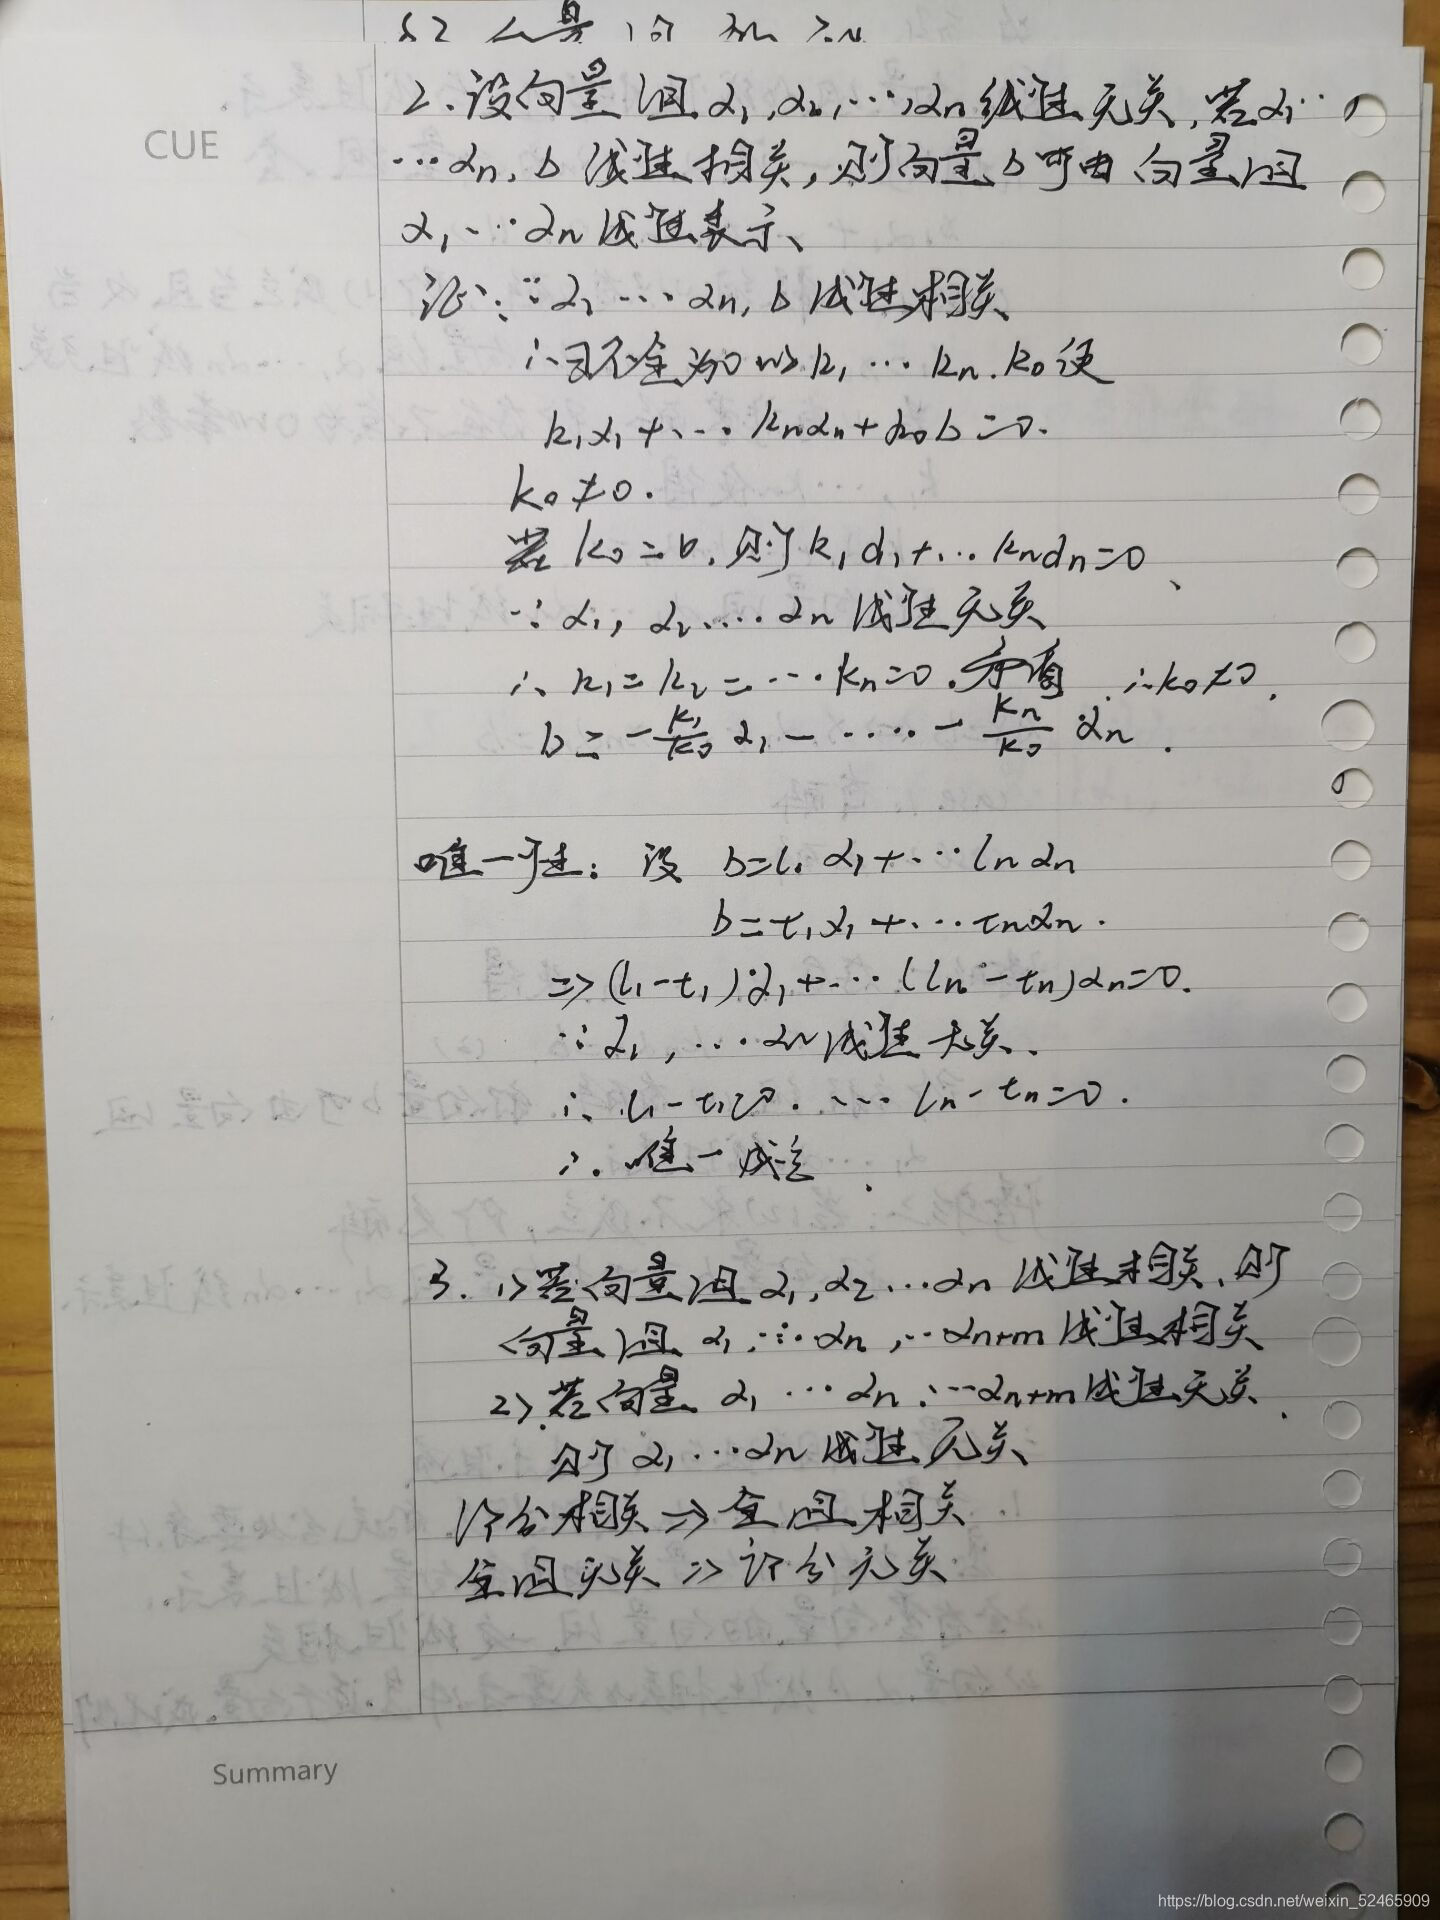 CUE
2.设向量组α₁,α₂,…,αn线性无关,若α₁…
…αn,b线性相关,则向量b可由向量组
α₁…αn线性表示、
证:∵α₁…αn,b线性相关
∴∃不全为0的k₁…kn.k₀使
k₁α₁+…knαn+k₀b=0.
k₀≠0.
若k₀=0,则k₁α₁+…knαn=0、
∵α₁,α₂…αn线性无关
∴k₁=k₂=…kn=0.矛盾.∴k₀≠0.
b=-k₁/k₀ α₁-……-kn/k₀ αn.
唯一性:设 b=l₁α₁+…lnαn
b=t₁α₁+…tnαn.
=>(l₁-t₁)α₁+…(ln-tn)αn=0.
∵α₁,…αn线性无关.
∴l₁-t₁=0.…ln-tn=0.
∴.唯一成立.
3. 1>若向量组α₁,α₂…αn线性相关,则
向量组α₁,…αn,…αn+m线性相关
2>若向量α₁…αn,…αn+m线性无关.
则α₁…αn线性无关
部分相关=>全组相关
全组无关=>部分无关
Summary
https://blog.csdn.net/weixin_52465909